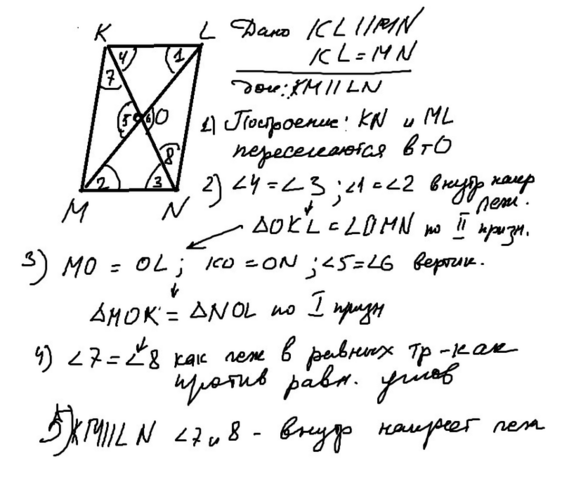 K L Дано KL || MN
KL = MN
4 1
7
док: KM || LN
5 6 O
1) Построение: KN и ML
пересекаются в т O
8
2 3
M N
2) ∠4 = ∠3; ∠1 = ∠2 внутр накр
леж.
ΔOKL = ∠OMN по II призн.
3) MO = OL; KO = ON; ∠5 = ∠6 вертик.
ΔMOK = ΔNOL по I призн
4) ∠7 = ∠8 как леж в равных тр-как
против равн. углов
5) KM || LN ∠7 и 8 - внутр накрест леж